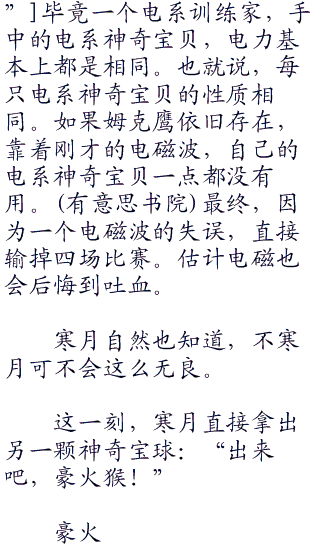 ”]毕竟一个电系训练家，手
中的电系神奇宝贝，电力基
本上都是相同。也就说，每
只电系神奇宝贝的性质相
同。如果姆克鹰依旧存在，
靠着刚才的电磁波，自己的
电系神奇宝贝一点都没有
用。(有意思书院)最终，因
为一个电磁波的失误，直接
输掉四场比赛。估计电磁也
会后悔到吐血。
寒月自然也知道，不寒
月可不会这么无良。
这一刻，寒月直接拿出
另一颗神奇宝球：“出来
吧，豪火猴！”
豪火